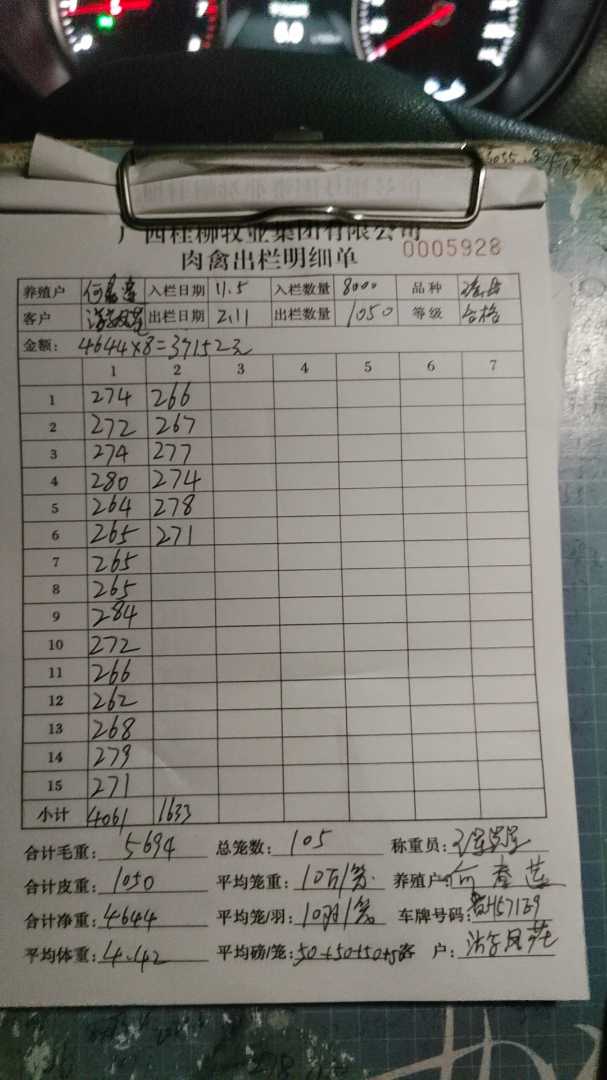 广西桂柳牧业集团有限公司
肉禽出栏明细单 0005928
养殖户 入栏日期 11.5 入栏数量 8000 品种
客户 出栏日期 2.11 出栏数量 1050 等级 合格
金额: 4644×8=37152元
1 2 3 4 5 6 7
1 274 266
2 272 267
3 274 277
4 280 274
5 264 278
6 265 271
7 265
8 265
9 284
10 272
11 266
12 262
13 268
14 279
15 271
小计 4061 1633
合计毛重: 5694 总笼数: 105 称重员:
合计皮重: 1050 平均笼重: 10斤/笼 养殖户:
合计净重: 4644 平均笼/羽: 10羽/笼 车牌号码:
平均体重: 4.42 平均磅/笼: 50+50+50+5 客 户: